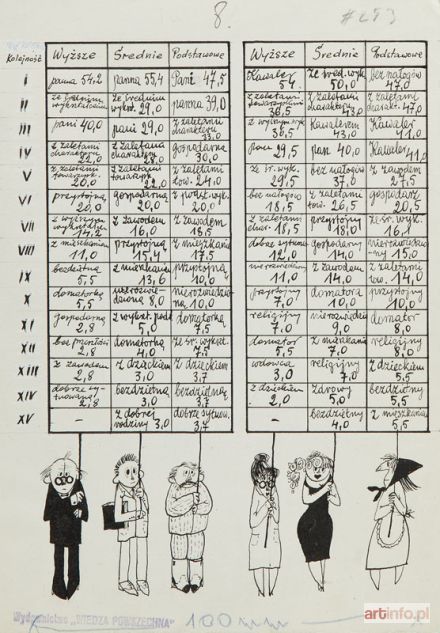 8.
# 253
Kolejność Wyższe Średnie Podstawowe Wyższe Średnie Podstawowe
I panna 54,2 panna 55,4 Pani 47,5 Kawaler 54 ze śred. wyk. 50,0 bez nałogów 47,0
II ze średnim wykształceniem ze średnim wykszt. 21,0 panna 39,0 z zaletami towarzyskimi 36,5 z zaletami charakteru 43,0 z zaletami charakt. 47,0
III pani 40,0 pani 29,0 z zaletami charakteru z wyższym wyk. 36,5 Kawalerem 43,0 Kawaler 41,0
IV z zaletami charakteru 22,0 z zaletami charakter. 28,0 gospodarna 30,0 Pan 29,5 pan 40,0 Kawaler 41,0
V z zaletami towarzysk. 20,0 z zaletami towarzysk. 22,0 z zaletami tow. 24,0 ze śr. wyk. 29,5 bez nałogów 37,0 z zawodem 27,5
VI przystojną 20,0 gospodarną 20,0 z podst. wyk. 20,0 bez nałogów 18,5 z zaletami tow. 26,5 gospodarny 20,5
VII z wyższym wykształc. 14,2 z zawodem 16,0 z zawodem 18,5 z zaletami char. 18,5 przystojny 18,0 ze śr. wyk. 16,4
VIII z mieszkaniem 11,0 przystojną 15,4 z mieszkanie 17,5 dobrze sytuow. 12,0 gospodarny 14,0 nierozwiedziony 15,0
IX bezdzietną 5,5 z mieszkaniem 13,6 przystojną 10,0 nierozwiedziony 11,0 z zawodem 14,0 z zaletami tow. 14,0
X domatorką 5,5 nierozwiedzioną 8,0 nierozwiedzioną 10,0 przystojny 7,0 domatora 10,0 przystojny 10,0
XI gospodarną 2,8 z wykszt. pod. 5,0 domatorką 7,5 religijny 7,0 nierozwiedziony 9,0 domator 8,0
XII bez przeszłości 2,8 domatorką 4,0 ze śr. wykszt. 7,5 domator 5,5 z mieszkania 7,0 religijny 8,0
XIII z zawodem 2,8 z dzieckiem 3,0 z dzieckiem 3,7 wdowca 3,0 religijny 7,0 z dzieckiem 5,5
XIV dobrze sytuowaną 2,8 bezdzietną 3,0 bezdzietną 3,7 z dzieckiem 2,0 zdrowy 5,0 bezdzietny 5,5
XV z dobrej rodziny 3,0 dobrze sytuow. 3,7 bezdzietny 4,0 z mieszkania 5,5
Wydawnictwo „WIEDZA POWSZECHNA"
100 mm
artinfo.pl